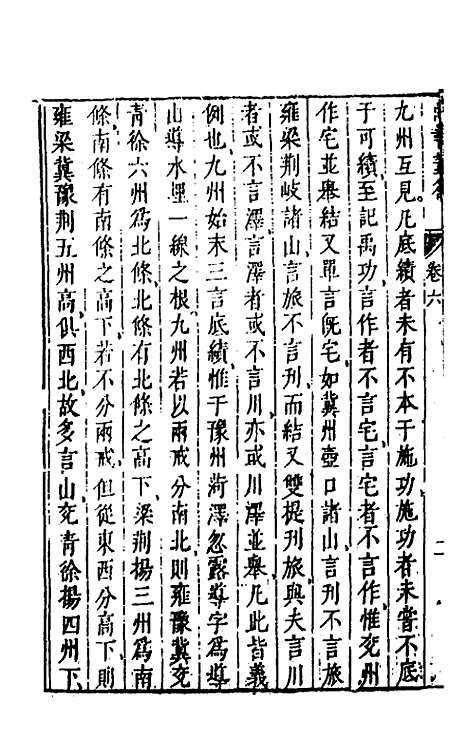 卷六
二
九州互見凡底績者未有不本于施功施功者未嘗不底
于可績至記禹功言作者不言宅言宅者不言作惟兖州
作宅並舉結又單言旣宅如冀州壺口諸山言刋不言旅
雍梁荆岐諸山言旅不言刋而結又雙提刋旅與夫言川
者或不言澤言澤者或不言川亦或川澤並舉凡此皆義
例也九州始末三言底績惟于豫州菏澤忽露導字爲導
山導水埋一線之根九州若以兩戒分南北則雍豫冀兖
青徐六州爲北條北條有北條之高下梁荆揚三州爲南
條南條有南條之高下若不分兩戒但從東西分高下則
雍梁冀豫荆五州高俱西北故多言山兖青徐揚四州下